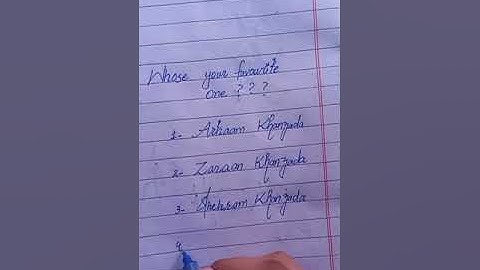 Whose your favourite
one ? ? ?
1- Arhaam Khanzada
2- Zaraan Khanzada
3- Shehram Khanzada
4